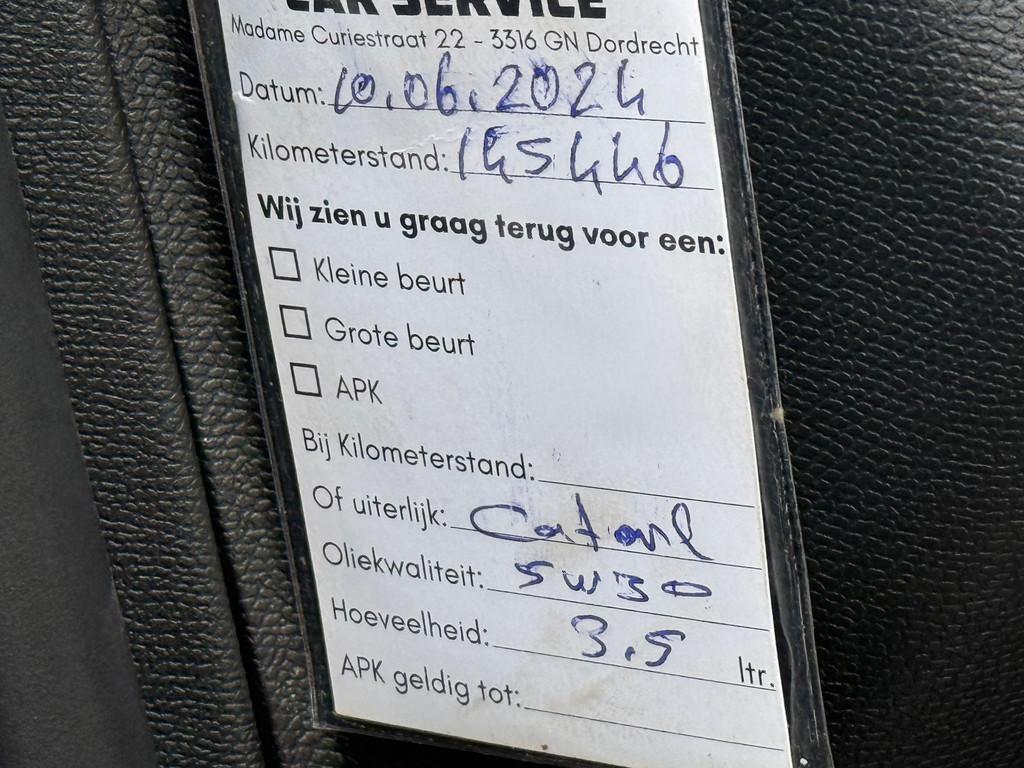 CAR SERVICE
Madame Curiestraat 22 - 3316 GN Dordrecht
Datum: 10.06.2024
Kilometerstand: 145446
Wij zien u graag terug voor een:
Kleine beurt
Grote beurt
APK
Bij Kilometerstand:
Of uiterlijk:
Oliekwaliteit: 5W30
Hoeveelheid: 3.5 ltr.
APK geldig tot: